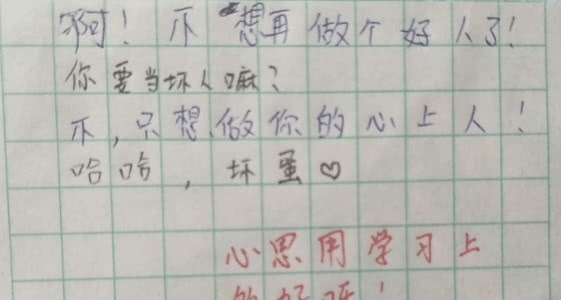 啊！不想再做个好人了！
你要当坏人嘛？
不，只想做你的心上人！
哈哈，坏蛋♡
心思用学习上
的好